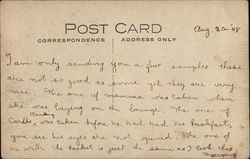 POST CARD
Aug. 20 '08
CORRESPONDENCE ADDRESS ONLY
I am only sending you a few samples these
are not so good as some yet they are very
nice. The one of mamma was taken when
she was laying on the lounge. The one of
was taken before he had had his breakfast
you see his eyes are not opened. The one of
me with the basket is just the same as I took this